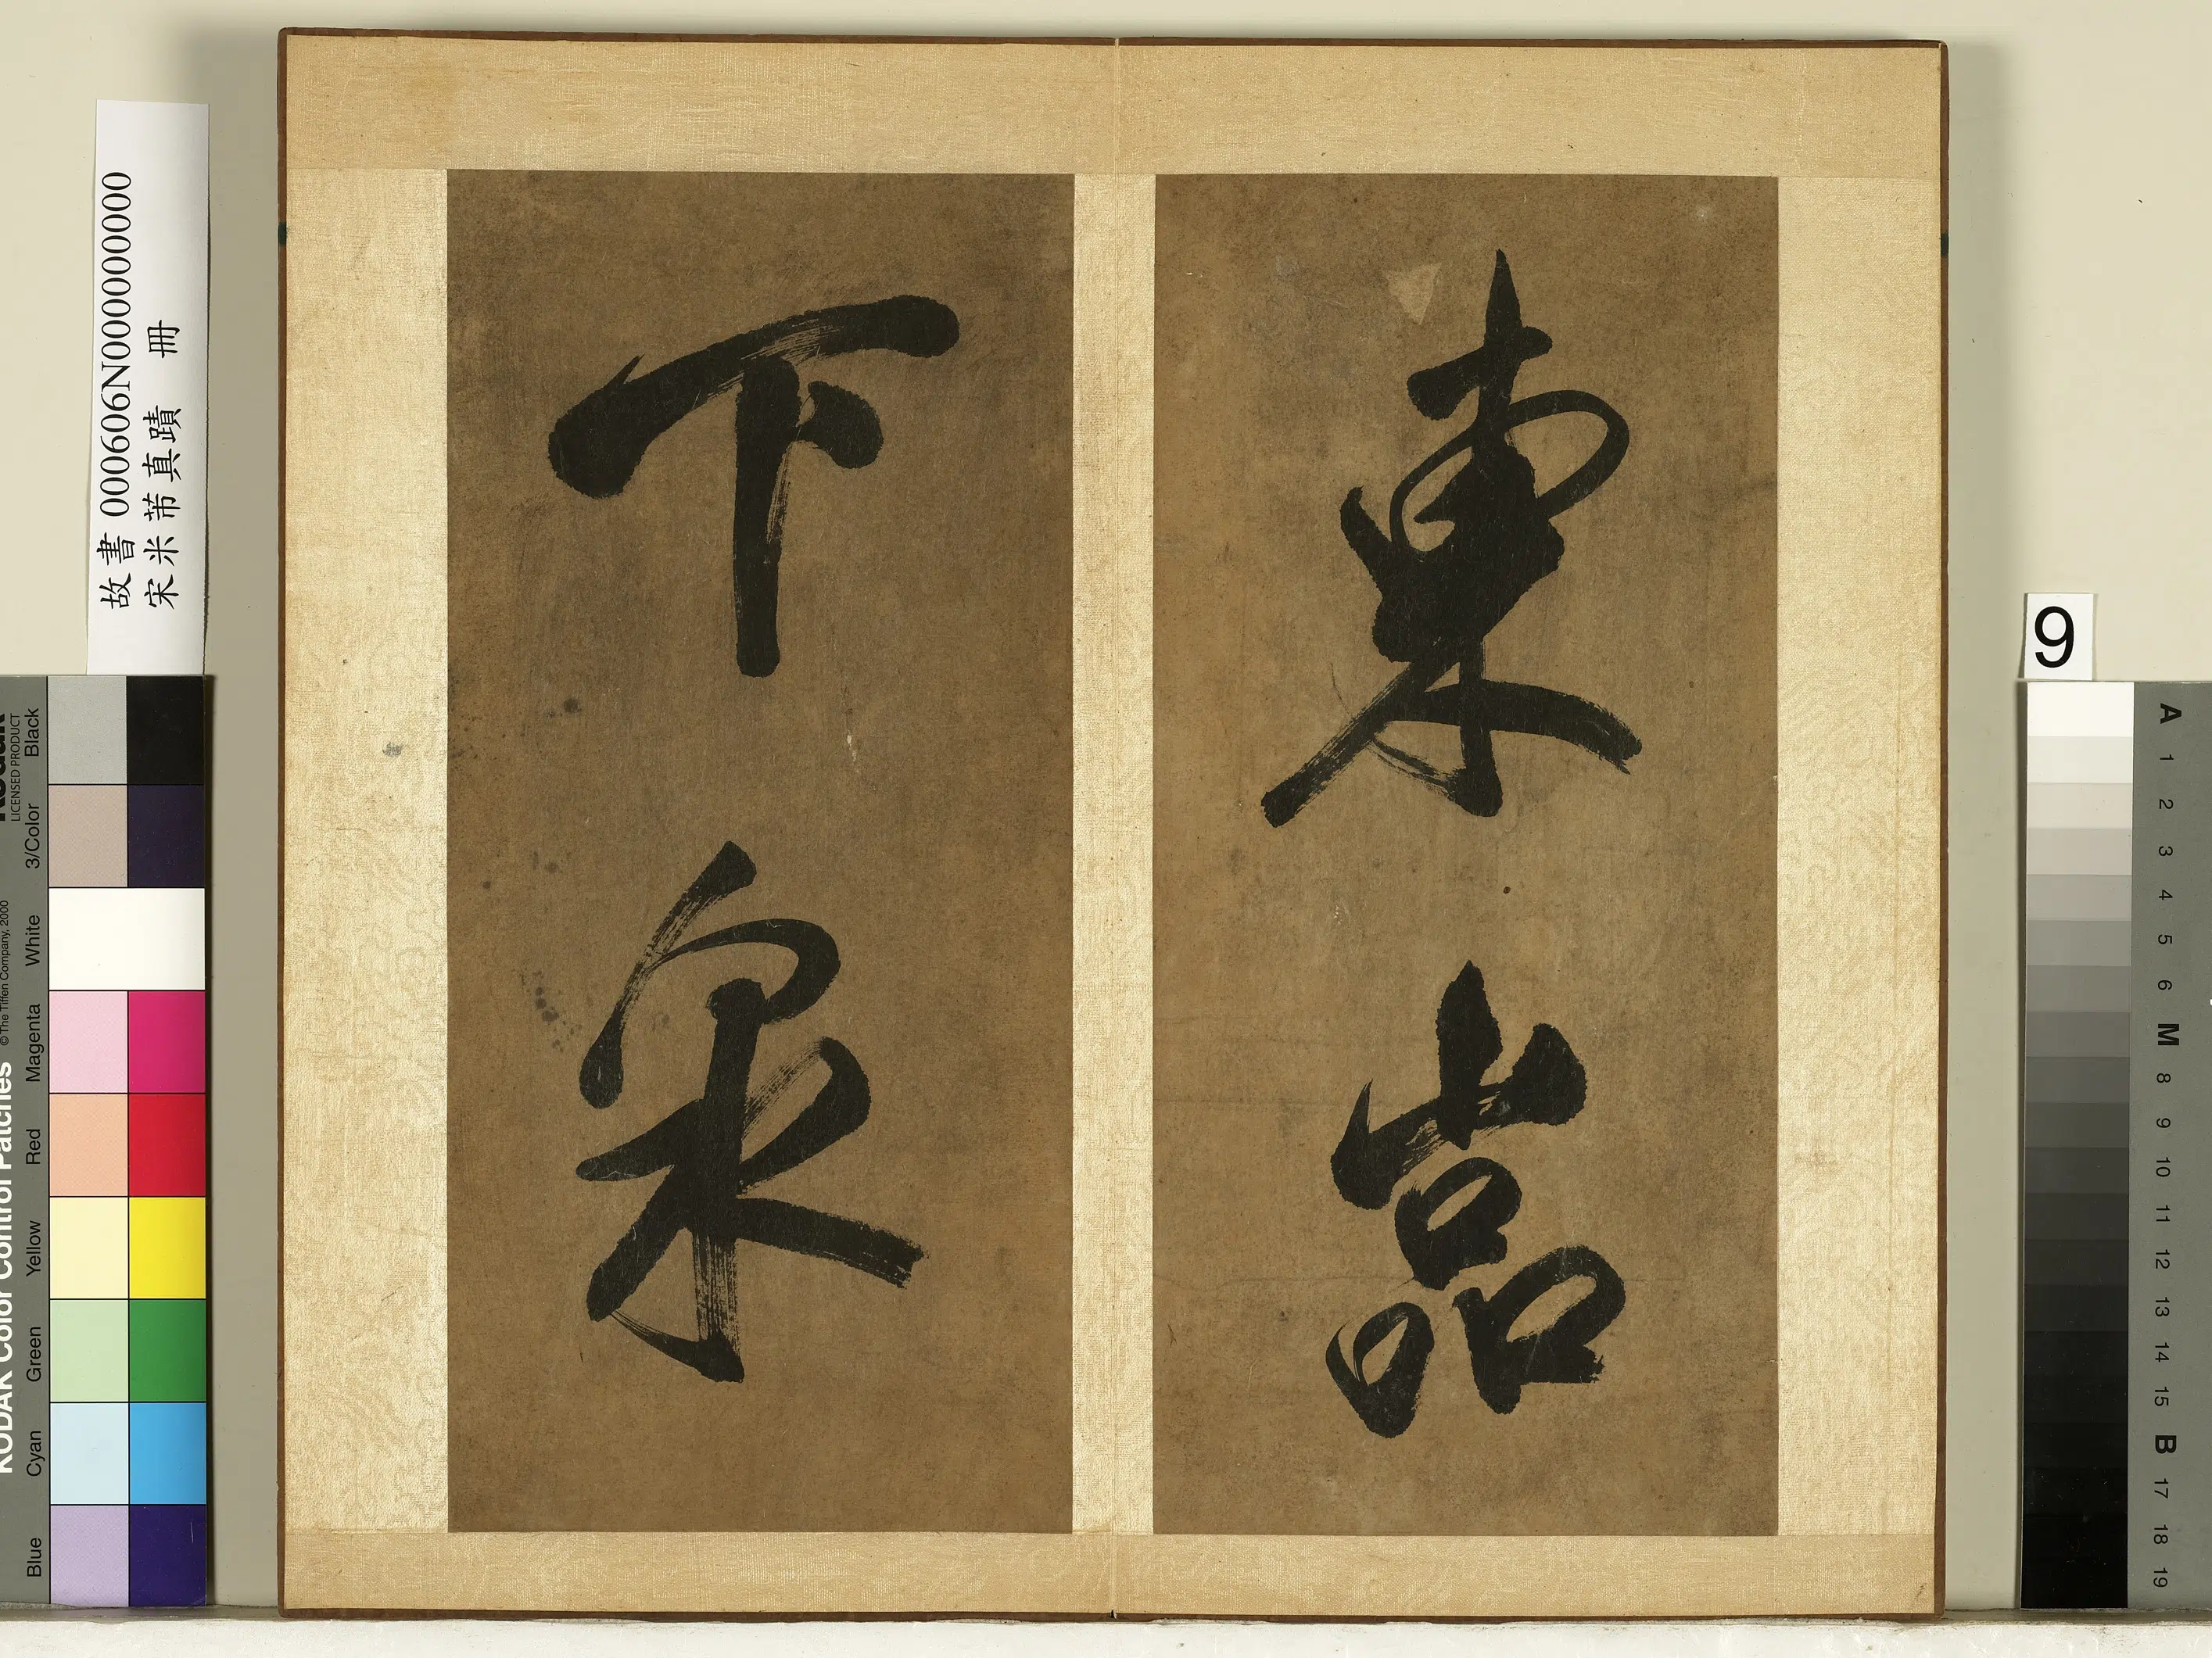 東嵓
下泉
故書 000606N000000000
宋米芾真蹟 冊
9
KODAK Color Control Patches
© The Tiffen Company, 2000
LICENSED PRODUCT
Blue Cyan Green Yellow Red Magenta White 3/Color Black
A 1 2 3 4 5 6 M 8 9 10 11 12 13 14 15 B 17 18 19